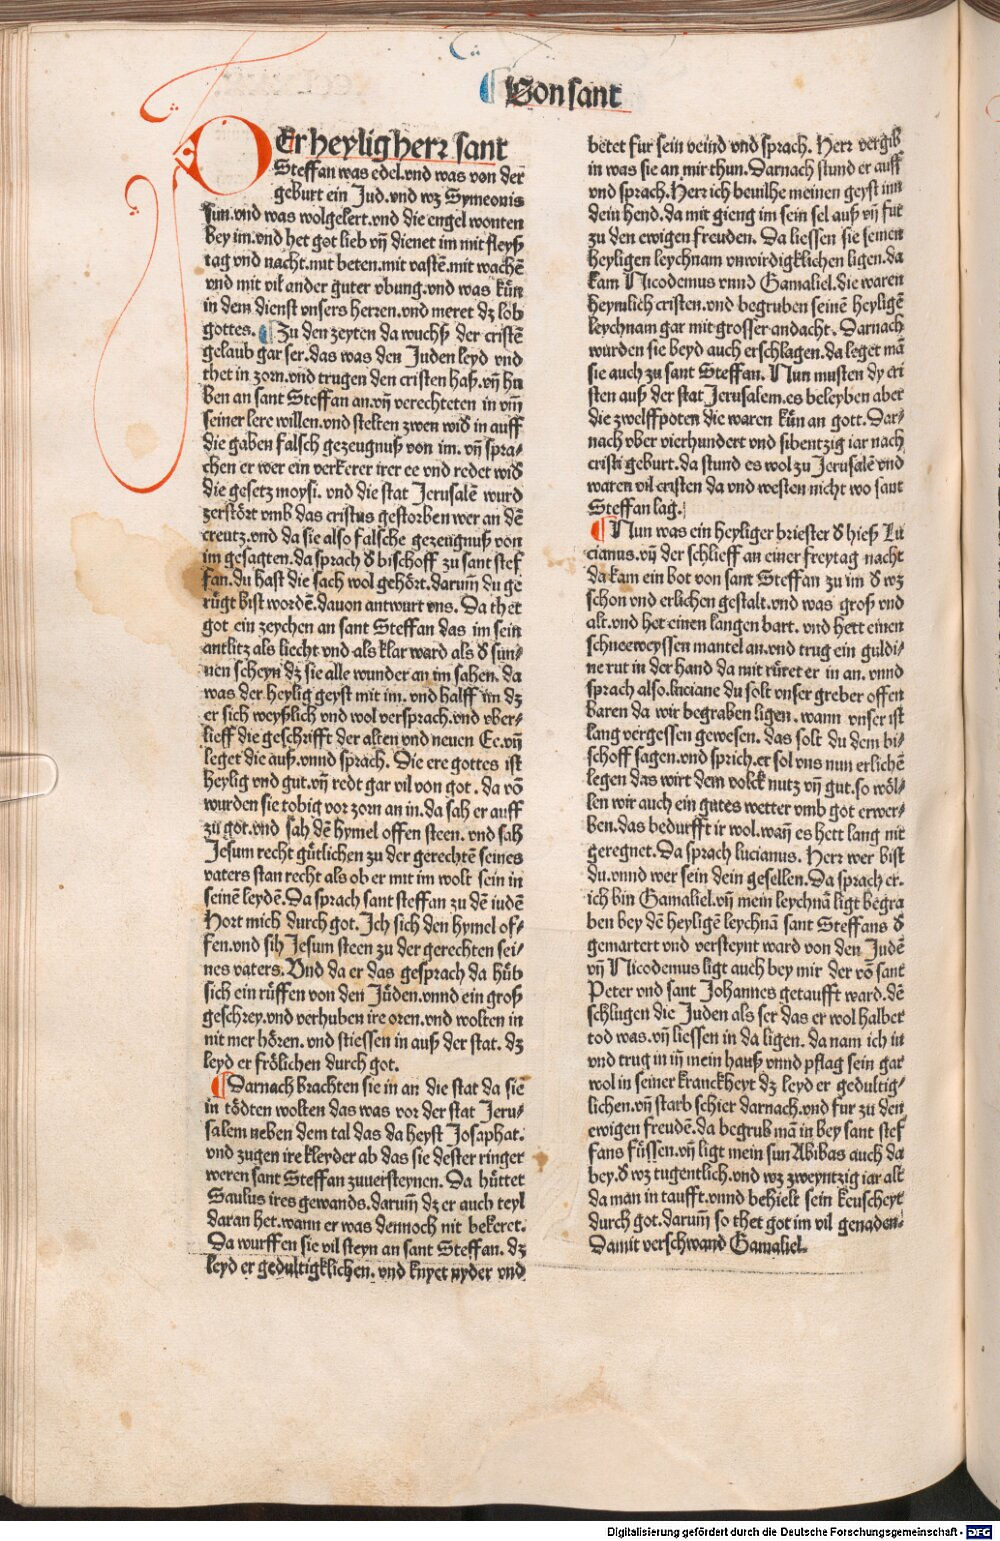 ¶ Von sant
DEr heylig herr sant
Steffan was edel.vnd was von der
geburt ein Jud.vnd wꝫ Symeonis
sun.vnd was wolgelert.vnd die engel wonten
bey im.vnd het got lieb vn̄ dienet im mit fleyß
tag vnd nacht.mit beten.mit vastē.mit wachē
vnd mit vil ander guter vbung.vnd was kůn
in dem dienst vnsers herren.vnd meret dꝫ lob
gottes. ¶ Zu den zeyten da wuchß der cristē
gelaub gar ser.das was den Juden leyd vnd
thet in zorn.vnd trugen den cristen haß.vn̄ hu
ben an sant Steffan an.vn̄ verechteten in vm̄
seiner lere willen.vnd stelten zwen wiđ in auff
die gaben falsch gezeugnuß von im. vn̄ spra⸗
chen er wer ein verkerer irer ee vnd redet wiđ
die gesetz moysi. vnd die stat Jerusalē wurd
zerstört vmb das cristus gestorben wer an dē
creutz.vnd da sie also falsche gezeugnuß von
im gesagten.da sprach đ bischoff zu sant stef
fan.du hast die sach wol gehört.darum̄ du ge
rügt bist wordē.dauon antwurt vns. Da thet
got ein zeychen an sant Steffan das im sein
antlitz als liecht vnd als klar ward als đ sun⸗
nen scheyn dꝫ sie alle wunder an im sahen. da
was der heylig geyst mit im. vnd halff im dꝫ
er sich weyßlich vnd wol versprach.vnd vber⸗
lieff die geschrifft der alten vnd neuen Ee.vn̄
leget die auß.vnnd sprach. Die ere gottes ist
heylig vnd gut.vn̄ redt gar vil von got . da vō
wurden sie tobig vor zorn an in.da sah er auff
zu got.vnd sah dē hymel offen steen. vnd sah
Jesum recht gütlichen zu der gerechtē seines
vaters stan recht als ob er mit im wolt sein in
seinē leydē.Da sprach sant steffan zu dē iudē
Hort mich durch got.Ich sich den hymel of⸗
fen.vnd sih Jesum steen zu der gerechten sei⸗
nes vaters.Vnd da er das gesprach da hůb
sich ein růffen von den Jüden.vnnd ein groß
geschrey.vnd verhuben ire oren.vnd wolten in
nit mer hören. vnd stiessen in auß der stat. dꝫ
leyd er frölichen durch got.
¶ Darnach brachten sie in an die stat da sie
in tödten wolten das was vor der stat Jeru⸗
salem neben dem tal das da heyst Josaphat.
vnd zugen ire kleyder ab das sie dester ringer
weren sant Steffan zuuersteynen. Da hüttet
Saulus ires gewands.darum̄ dꝫ er auch teyl
daran het.wann er was dennoch nit bekeret.
Da wurffen sie vil steyn an sant Steffan. dꝫ
leyd er gedultigklichen. vnd knyet nyder vnd
betet fur sein veind vnd sprach. Herr vergib
in was sie an mir thun. Darnach stund er auff
vnd sprach.Herr ich beuilhe meinen geyst inn
dein hend.da mit gieng im sein sel auß vn̄ fur
zu den ewigen freuden. Da liessen sie seinen
heyligen leychnam vnwirdigklichen ligen.da
kam Nicodemus vnnd Gamaliel.die waren
heymlich cristen.vnd begruben seinē heyligē
leychnam gar mit grosser andacht. Darnach
wurden sie beyd auch erschlagen.da leget mā
sie auch zu sant Steffan. Nun musten dy cri
sten auß der stat Jerusalem.es beleyben aber
die zwelffpoten die waren kůn an gott. Dar⸗
nach vber vierhundert vnd sibentzig iar nach
cristi geburt.da stund es wol zu Jerusalē vnd
waren vil cristen da vnd westen nicht wo sant
Steffan lag.
¶ Nun was ein heyliger briester đ hieß Lu
cianus.vn̄ der schlieff an einer freytag nacht
da kam ein bot von sant Steffan zu im đ wꝫ
schon vnd erlichen gestalt.vnd was groß vnd
alt.vnd het einen langen bart. vnd hett einen
schneeweyssen mantel an.vnd trug ein guldi⸗
ne rut in der hand da mit růret er in an. vnnd
sprach also.luciane du solt vnser greber offen
baren da wir begraben ligen. wann vnser ist
lang vergessen gewesen. das solt du dem bi⸗
schoff sagen.vnd sprich.er sol vns nun erlichē
legen das wirt dem volck nutz vn̄ gut.so wöl⸗
len wir auch ein gutes wetter vmb got erwer⸗
ben.das bedurfft ir wol.wan̄ es hett lang nit
geregnet.Da sprach lucianus. Herr wer bist
du.vnnd wer sein dein gesellen.Da sprach er.
ich bin Gamaliel.vn̄ mein leychnā ligt begra
ben bey dē heyligē leychnā sant Steffans đ
gemartert vnd versteynt ward von den Judē
vn̄ Nicodemus ligt auch bey mir der vō sant
Peter vnd sant Johannes getaufft ward.dē
schlugen die Juden als ser das er wol halber
tod was.vn̄ liessen in da ligen. da nam ich in
vnd trug in in̄ mein hauß vnnd pflag sein gar
wol in seiner kranckheyt dꝫ leyd er gedultig⸗
lichen.vn̄ starb schier darnach.vnd fur zu den
ewigen freudē.da begrub mā in bey sant stef
fans füssen.vn̄ ligt mein sun Abibas auch da
bey.đ wꝫ tugentlich.vnd wꝫ zweyntzig iar alt
da man in taufft.vnnd behielt sein keuscheyt
durch got.darum̄ so thet got im vil genaden.
Damit verschwand Gamaliel.
Digitalisierung gefördert durch die Deutsche Forschungsgemeinschaft - DFG